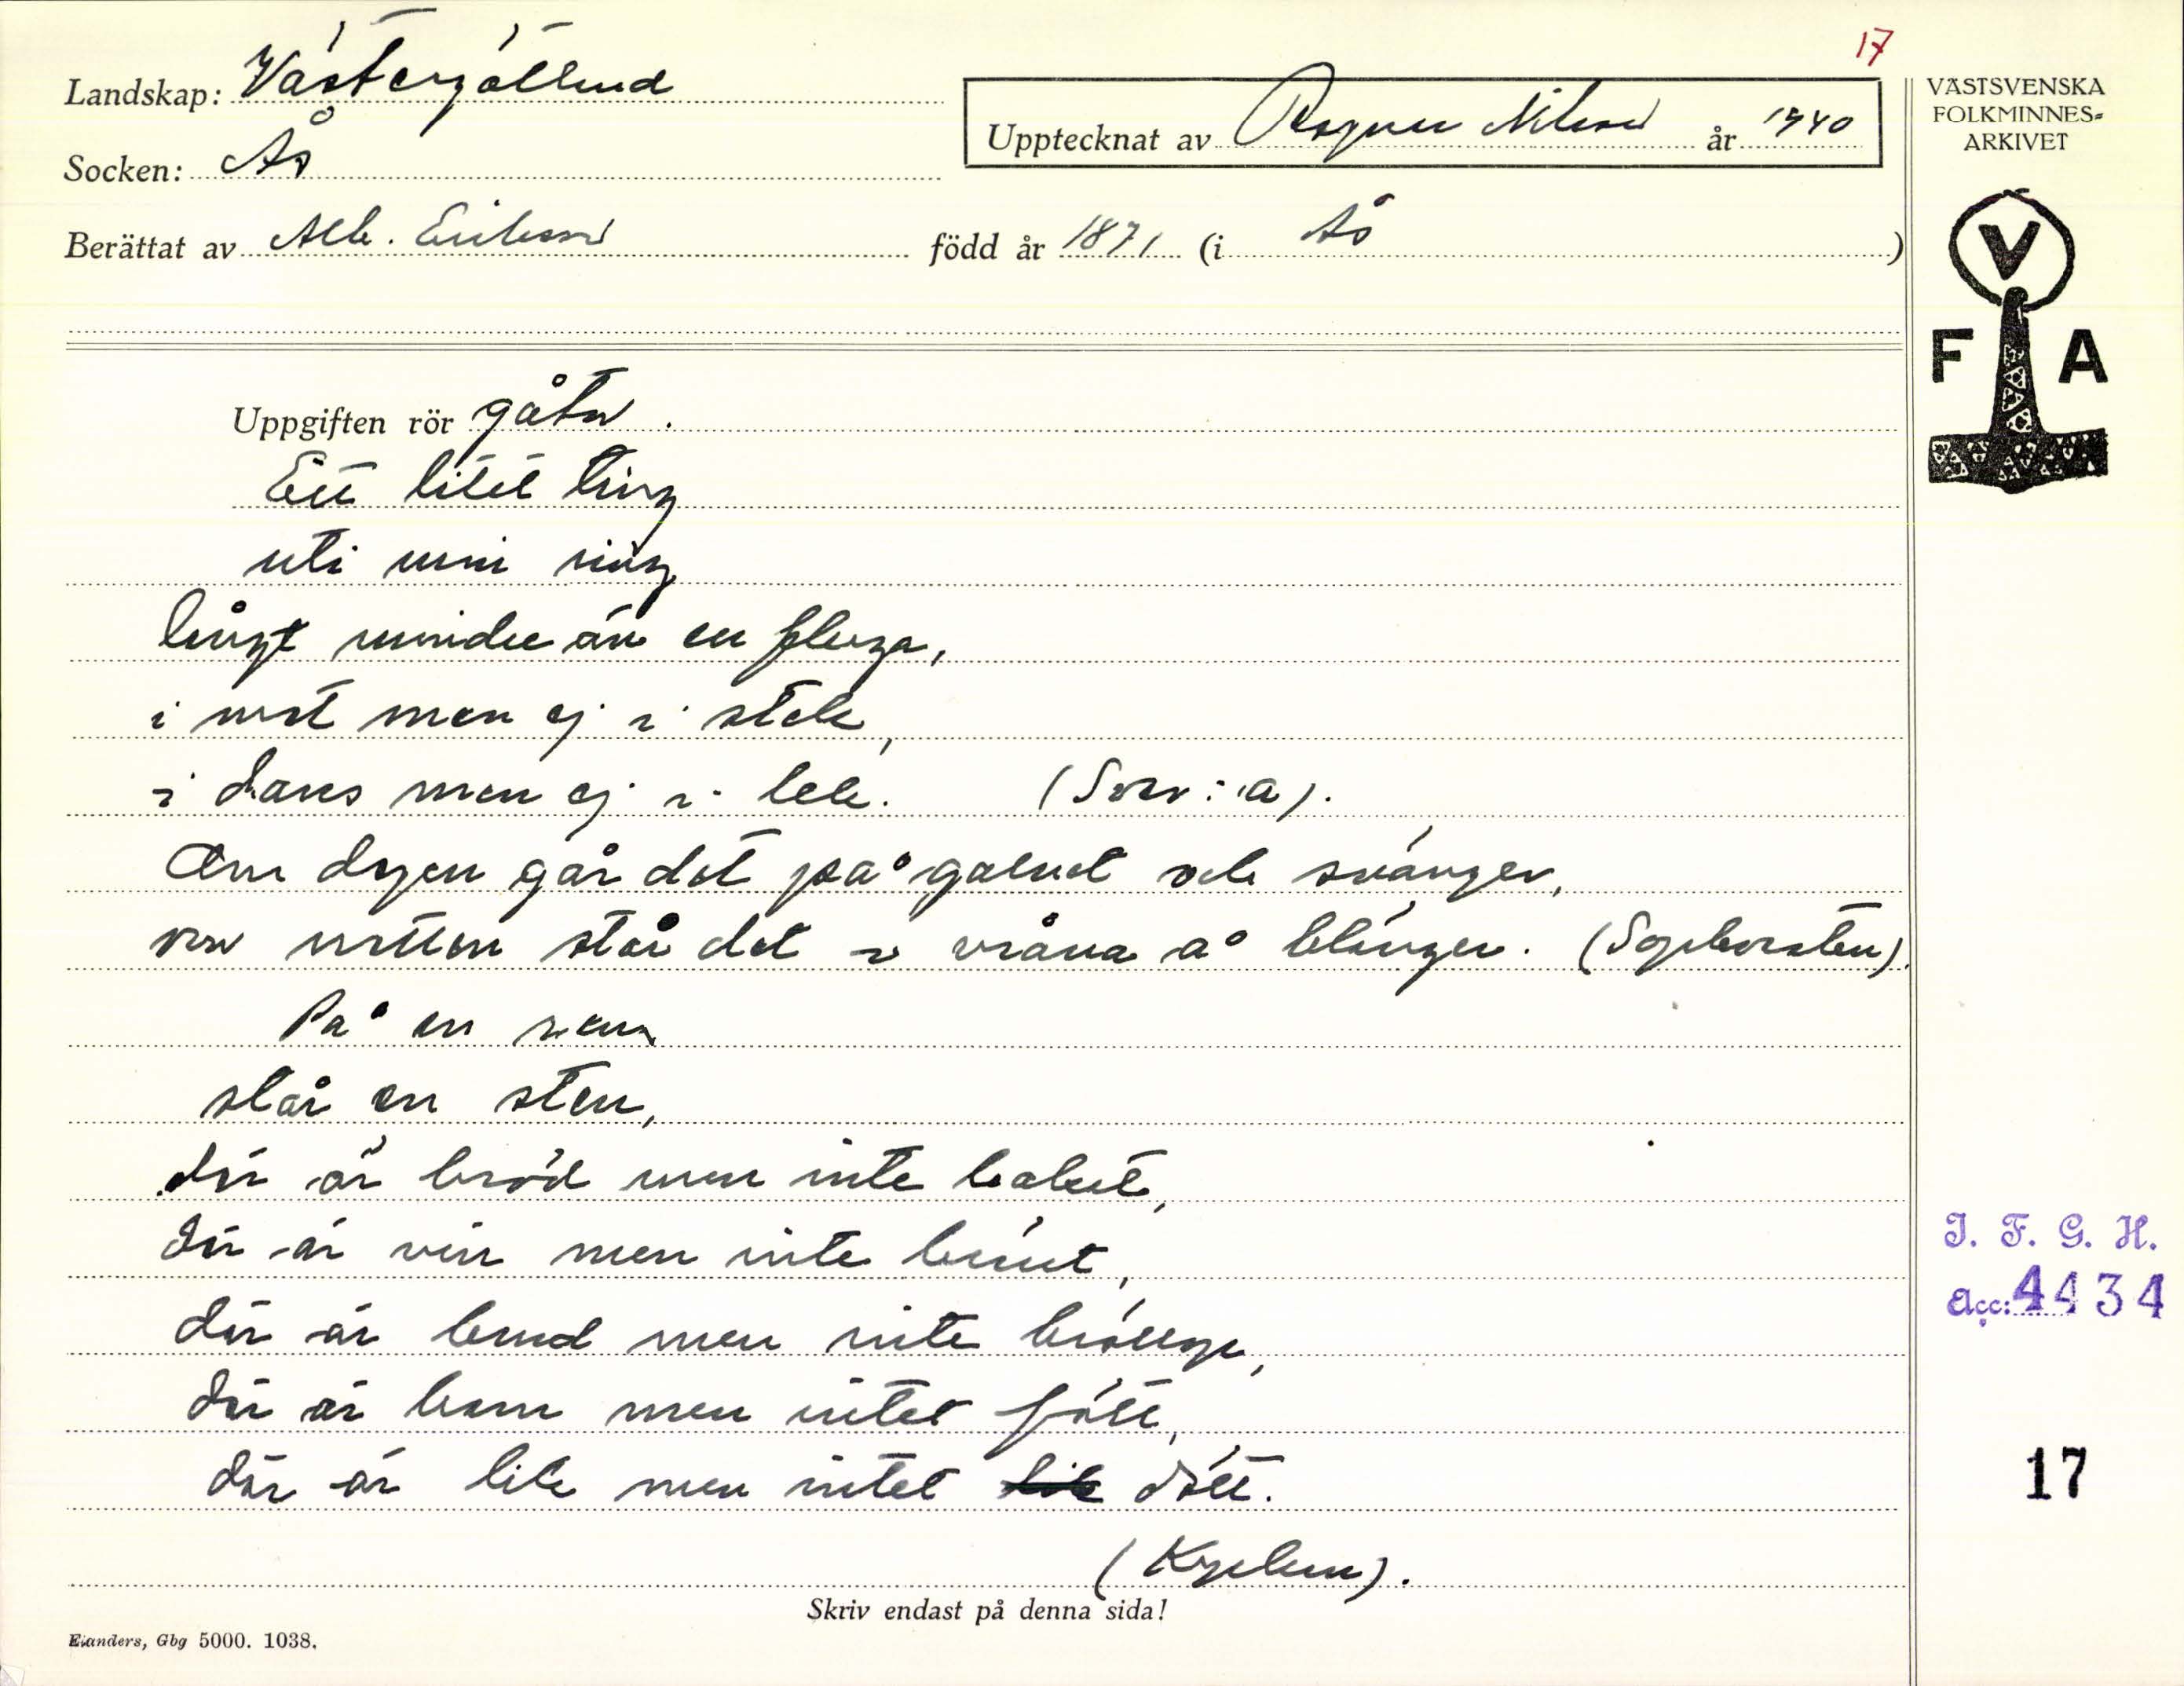 17
Landskap: Västergötland
Socken: Ås
Upptecknat av Ragnar Nilsson år 1940
Berättat av Alb. Eriksson född år 1871 (i Ås)
VÄSTSVENSKA
FOLKMINNES=
ARKIVET
V
F A
Uppgiften rör gåtor.
Ett litet ting
uti min ring
långt mindre än en fluga,
i natt men ej i stek,
i dans men ej i lek. (Svar: a).
Om dagen går det på golvet och svänger,
om natten står det i vråna å blänger. (Sopborsten).
På en ren
står en sten,
där är bröd men inte bakat,
där är vin men inte
där är brud men inte bröllop,
där är barn men intet fött,
där är lik men intet lik dött.
(Kyrkan).
Skriv endast på denna sida!
Elanders, Gbg 5000. 1038.
I. F. G. H.
Acc: 4434
17